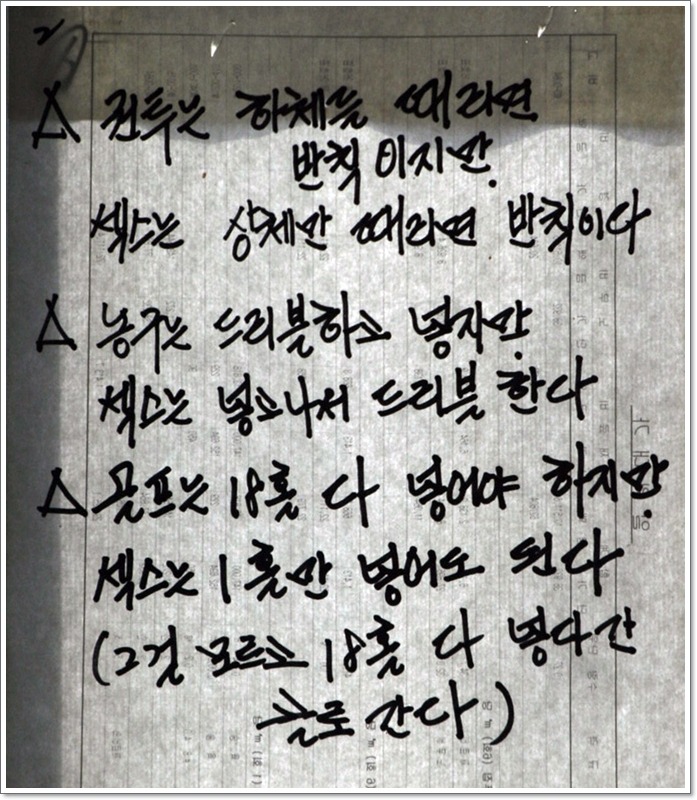 2
△ 권투는 하체를 때리면
반칙 이지만.
섹스는 상체만 때리면 반칙이다
△ 농구는 드리블하고 넣지만.
섹스는 넣고나서 드리블 한다
△ 골프는 18홀 다 넣어야 하지만.
섹스는 1홀만 넣어도 된다
(그걸 모르고 18홀 다 넣다간
골로 간다)